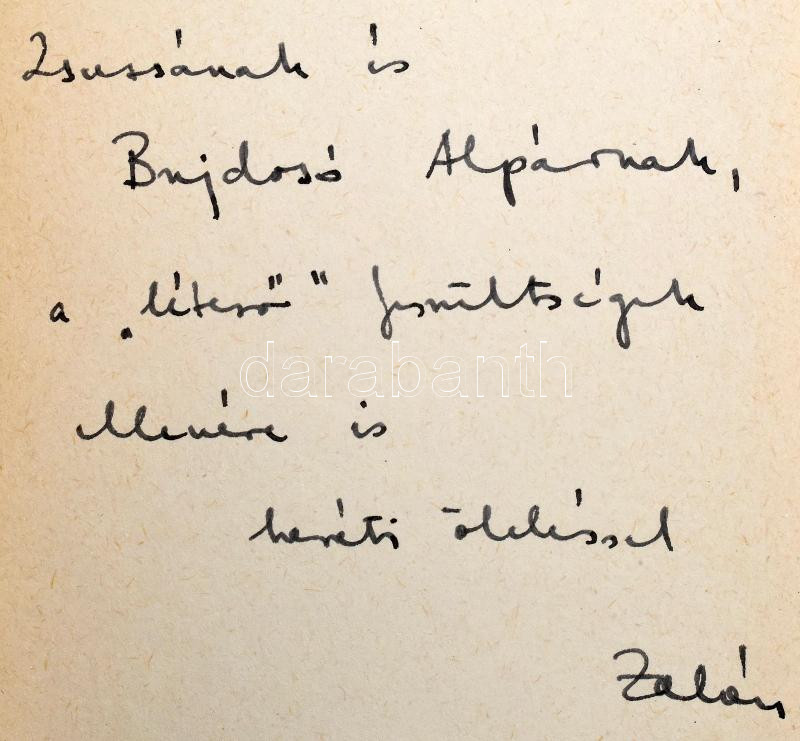 Zsuzsának és
Bujdosó Alpárnak,
a „létező" feszültségek
ellenére is
baráti öleléssel
Zalán
darabanth